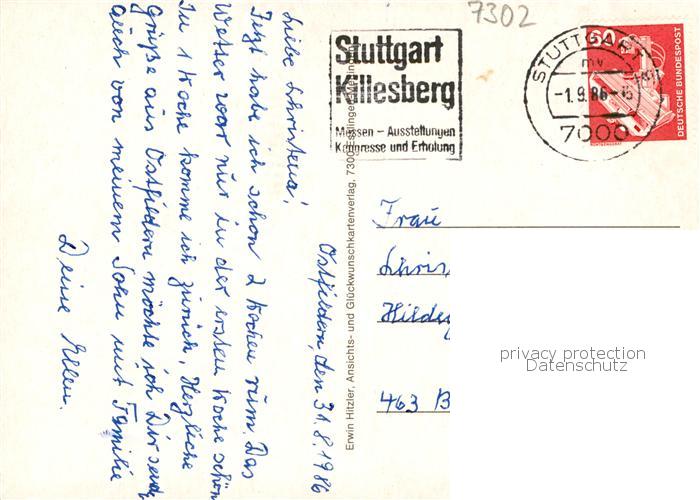 7302
Stuttgart
Killesberg
Messen - Ausstellungen
Kongresse und Erholung
STUTTGART
-1.9.86-
7000
60
DEUTSCHE BUNDESPOST
Ostfildern, den 31.8.1986
Liebe Christena!
Jetzt habe ich schon 2 Wochen rum. Das
Wetter war nur in der ersten Woche schön
In 1 Woche komme ich zurück. Herzliche
Grüße aus Ostfildern möchte ich Dir send
auch von meinem Sohn mit Familie
Deine Ellen.
Erwin Hitzler, Ansichts- und Glückwunschkartenverlag, 7300 Esslingen
Frau
Chris
Hilde
463 B
privacy protection
Datenschutz